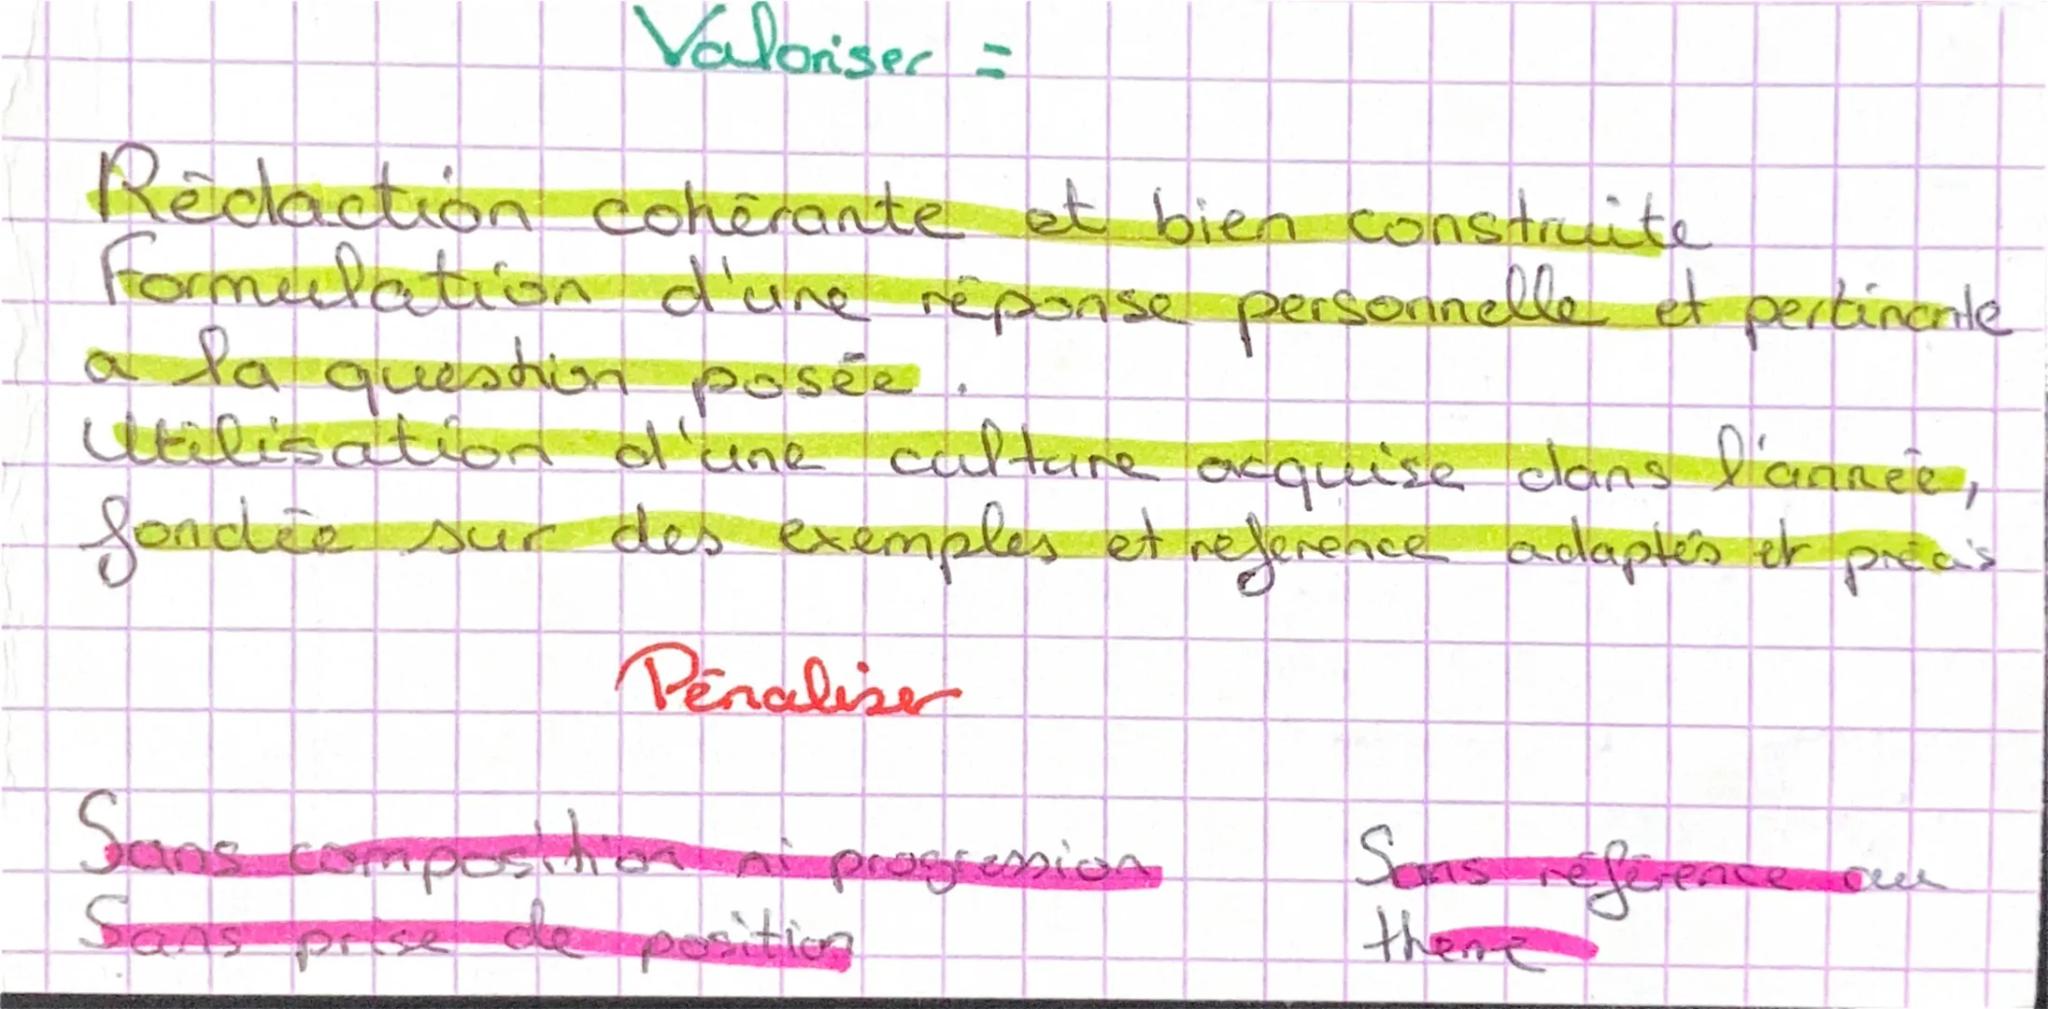 Valoriser =
Rédaction cohérante et bien construite
Formulation d'une réponse personnelle et pertinante
a la question posée.
Utilisation d'une culture acquise dans l'année,
fondée sur des exemples et reference adaptés et précis
Pénaliser
Sans composition ni progression
Sans prise de position
Sans référence au
theme